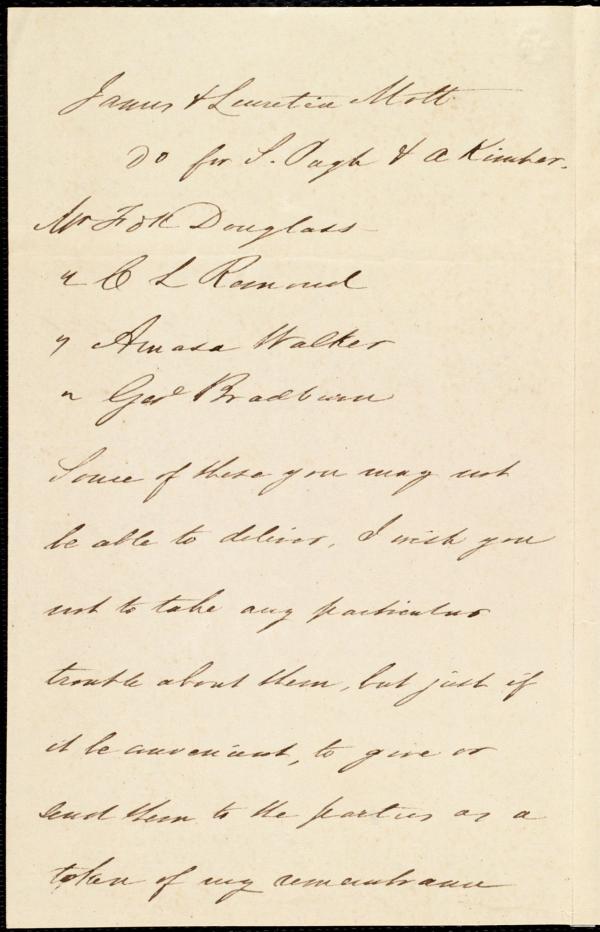 James & Lucretia Mott
Do for S. Pugh & A Kimber.
Mr Fdk Douglass
" C L Remond
" Amasa Walker
" Geo. Bradburn
Some of these you may not
be able to deliver, I wish you
not to take any particular
trouble about them, but just if
it be convenient, to give or
send them to the parties as a
token of my remembrance